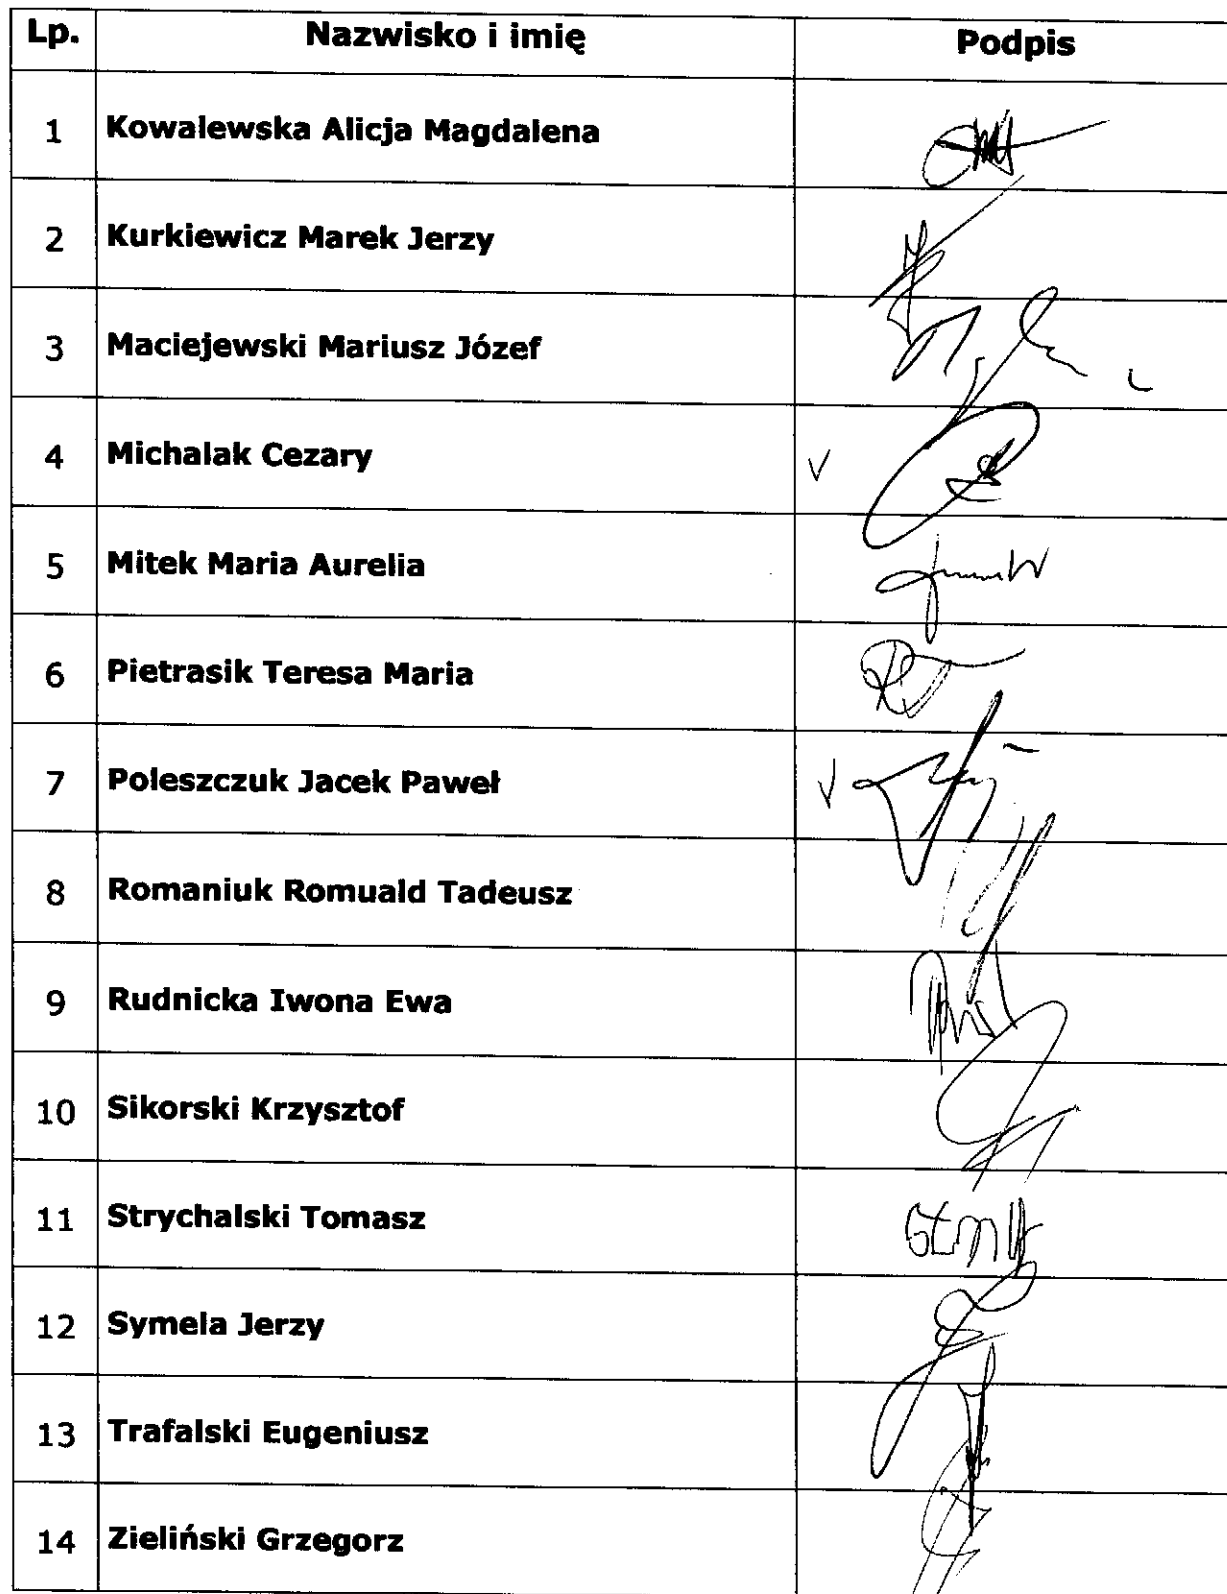 Lp. Nazwisko i imię Podpis
1 Kowalewska Alicja Magdalena
2 Kurkiewicz Marek Jerzy
3 Maciejewski Mariusz Józef
4 Michalak Cezary V
5 Mitek Maria Aurelia
6 Pietrasik Teresa Maria
7 Poleszczuk Jacek Paweł V
8 Romaniuk Romuald Tadeusz
9 Rudnicka Iwona Ewa
10 Sikorski Krzysztof
11 Strychalski Tomasz
12 Symela Jerzy
13 Trafalski Eugeniusz
14 Zieliński Grzegorz